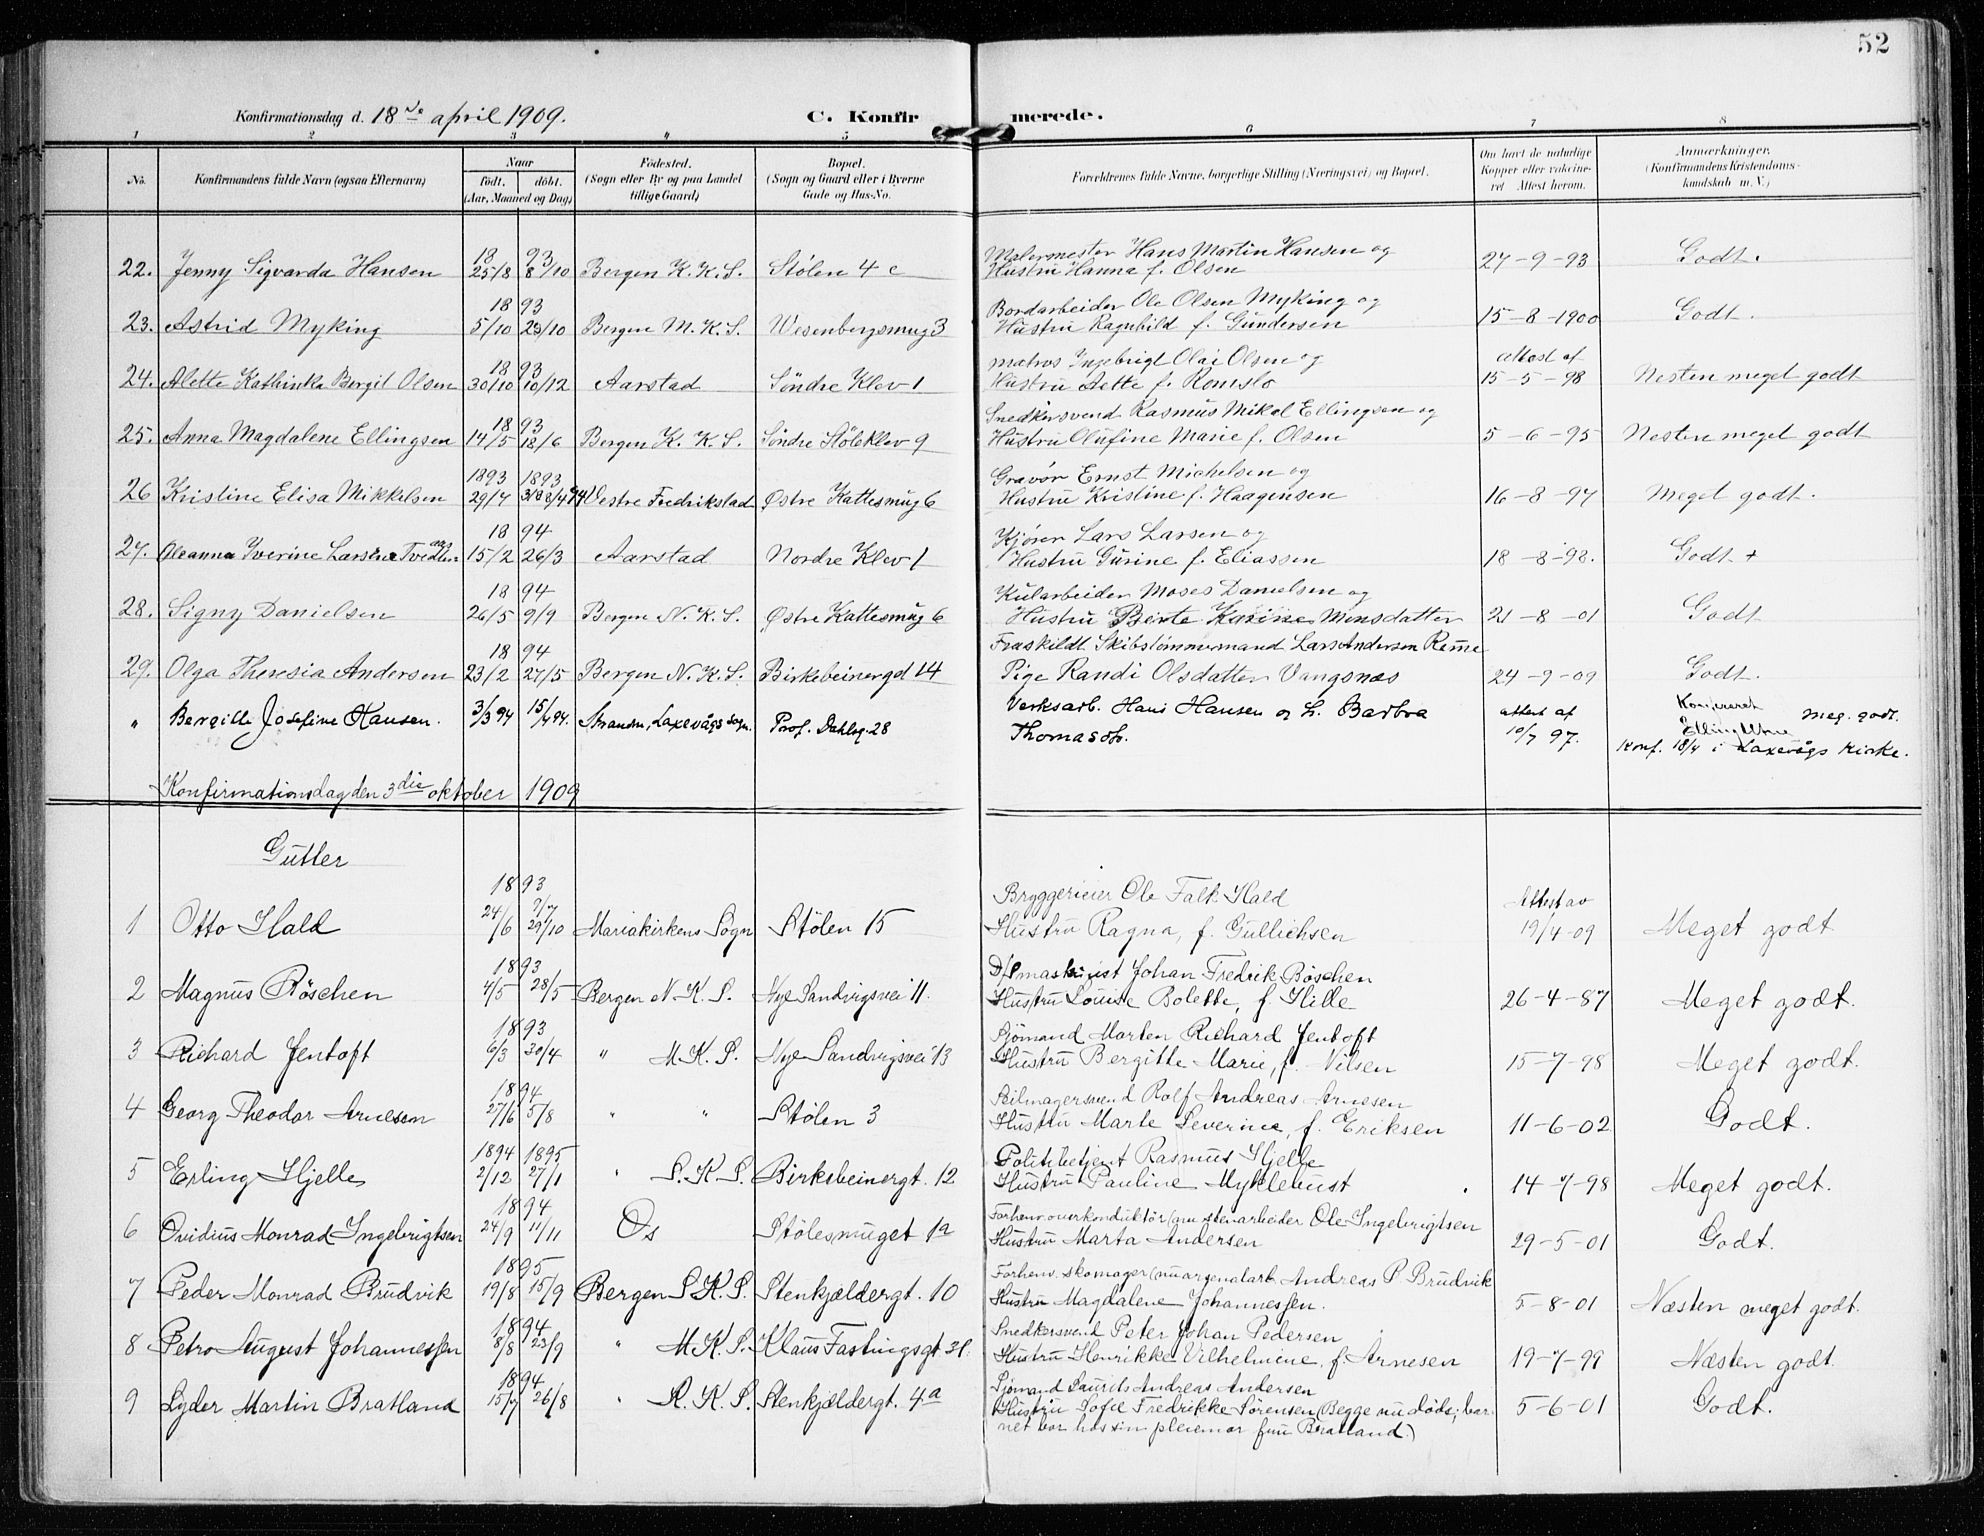 52
Konfirmationsdag d. 18de april 1909. C. Konfirmerede.
1 2 3 " 5 6 7 8
No. Konfirmandens fulde Navn (ogsaa Efternavn) Naar født. døbt. (Aar, Maaned og Dag) Fødested. (Sogn eller By og paa Landet tillige Gaard) Bopæl. (Sogn og Gaard eller i Byerne Gade og Hus-No. Forældrenes fulde Navne, borgerlige Stilling (Næringsvei) og Bopæl. Om havt de naturlige Kopper eller vaccineret Attest herom. Anmærkninger. (Konfirmandens Kristendomskundskab m. V.)
18 93 Malermester Hans Martin Hansen og
22. Jenny Sigvarda Hansen 25/8 8/10 Bergen K. K. S. Stølen 4 c Hustru Hanna f. Olsen 27-9-93 Godt.
18 93 Bordarbeider Ole Olsen Myking og
23. Astrid Myking 5/10 29/10 Bergen M. K. S. Wesenbergsmug 3 Hustru Ragnhild f. Gundersen 15-8-1900 Godt.
18 93 Matros Ingebrigt Olai Olsen og attest af
24. Alette Kathinka Bergit Olsen 30/10 10/12 Aarstad Söndre Klev 1 Hustru Aette f. Romslo 15-5-98 Nesten meget godt
18 93 Snedkersvend Rasmus Mikal Ellingsen og
25. Anna Magdalene Ellingsen 14/5 18/6 Bergen K. K. S. Söndre Stöleklev 9 Hustru Olufine Marie f. Olsen 5-6-95 Nesten meget godt
1893 1893 Gravör Ernst Michelsen og
26 Kristine Elisa Mikkelsen 29/7 Vestre Fredrikstad Østre Kattesmug 6 Hustru Kristine f. Haagensen 16-8-97 Meget godt.
18 94 Kjörer Lars Larsen og
27. Oleanna Iverine Larsen 15/2 26/3 Aarstad Nordre Klev 1 Hustru Gurine f. Eliassen 18-8-98. Godt +
18 94 Kularbeider Moses Danielsen og
28. Signy Danielsen 26/5 9/9 Bergen N. K. S. Østre Kattesmug 6 Hustru Berte Karine Monsdatter 21-8-01 Godt
18 94 Fraskildt Skibstömmermand Lars Andersen Reme
29. Olga Theresia Andersen 23/2 27/5 Bergen N. K. S. Birkebeinergd 14 Pige Randi Olsdatter Vangsnæs 24-9-09 Godt.
" Bergitte Josefine Hansen. 3/3 94 15/4 94. Laxevågs sogn. Prof. Dahlsg. 28 Verksarb. Hans Hansen og h. Barbra Thomasdt. attest af 10/7 97. Konfereret meg. godt.
Konf. 18/4 i Laxevågs kirke.
Konfirmationsdag den 3die oktober 1909
Gutter
18 93 Bryggerieier Ole Falk Hald Attest av
1 Otto Hald 24/6 29/10 Mariakirkens Sogn Stölen 15 Hustru Ragna, f. Gullichsen 19/4-09 Meget godt
18 93 D/S maskinist Johan Fredrik Böschen
2 Magnus Böschen 4/5 28/5 Bergen N. K. S. Nye Sandvigsvei 11. Hustru Louise Bolette, f. Hille 26-4-87 Meget godt.
18 93 Sjömand Morten Richard Jentoft
3 Richard Jentoft 6/3 30/4 " M. K. S. Nye Sandvigsvei 13 Hustru Bergitte Marie, f. Nilsen 15-7-98 Meget godt.
18 94 Seilmagersvend Rolf Andreas Arnesen
4 Georg Theodor Arnesen 27/6 5/8 " " Stölen 3 Hustru Marte Severine, f. Eriksen 11-6-02 Godt.
1894 1895 Politibetjent Rasmus Hjelle
5 Erling Hjelle 2/12 27/1 " S. K. S. Birkebeinergt. 12 Hustru Pauline Myklebust 14-7-98 Meget godt.
18 94 Forhenv. overkonduktör (nu stenarbeider Ole Ingebrigtsen
6 Ovidius Monrad Ingebrigtsen 24/9 11/11 Os Stölesmuget 1a Hustru Marta Andersen 29-5-01 Godt.
18 95 Forhenv. skomager (nu arsenalarb. Andreas P. Brudvik
7 Peder Monrad Brudvik 19/8 15/9 Bergen S. K. S. Stenkjældergt. 10 Hustru Magdalene Johannessen. 5-8-01 Næsten meget godt.
18 94 Snedkersvend Peter Johan Pedersen
8 Petro August Johannessen 8/8 23/9 " M. K. S. Klaus Fastingsgt 31. Hustru Henrikke Vilhelmine, f. Arnesen 19-7-99 Næsten godt.
18 94 Sjömand Laurits Andreas Andersen
9 Lyder Martin Bratland 15/7 26/8 " K. K. S. Stenkjældergt. 4a Hustru Sofie Fredrikke Sörensen (Begge nu döde; bar- 5-6-01 Godt.
net bor hos sin pleiemor fru Bratland.)